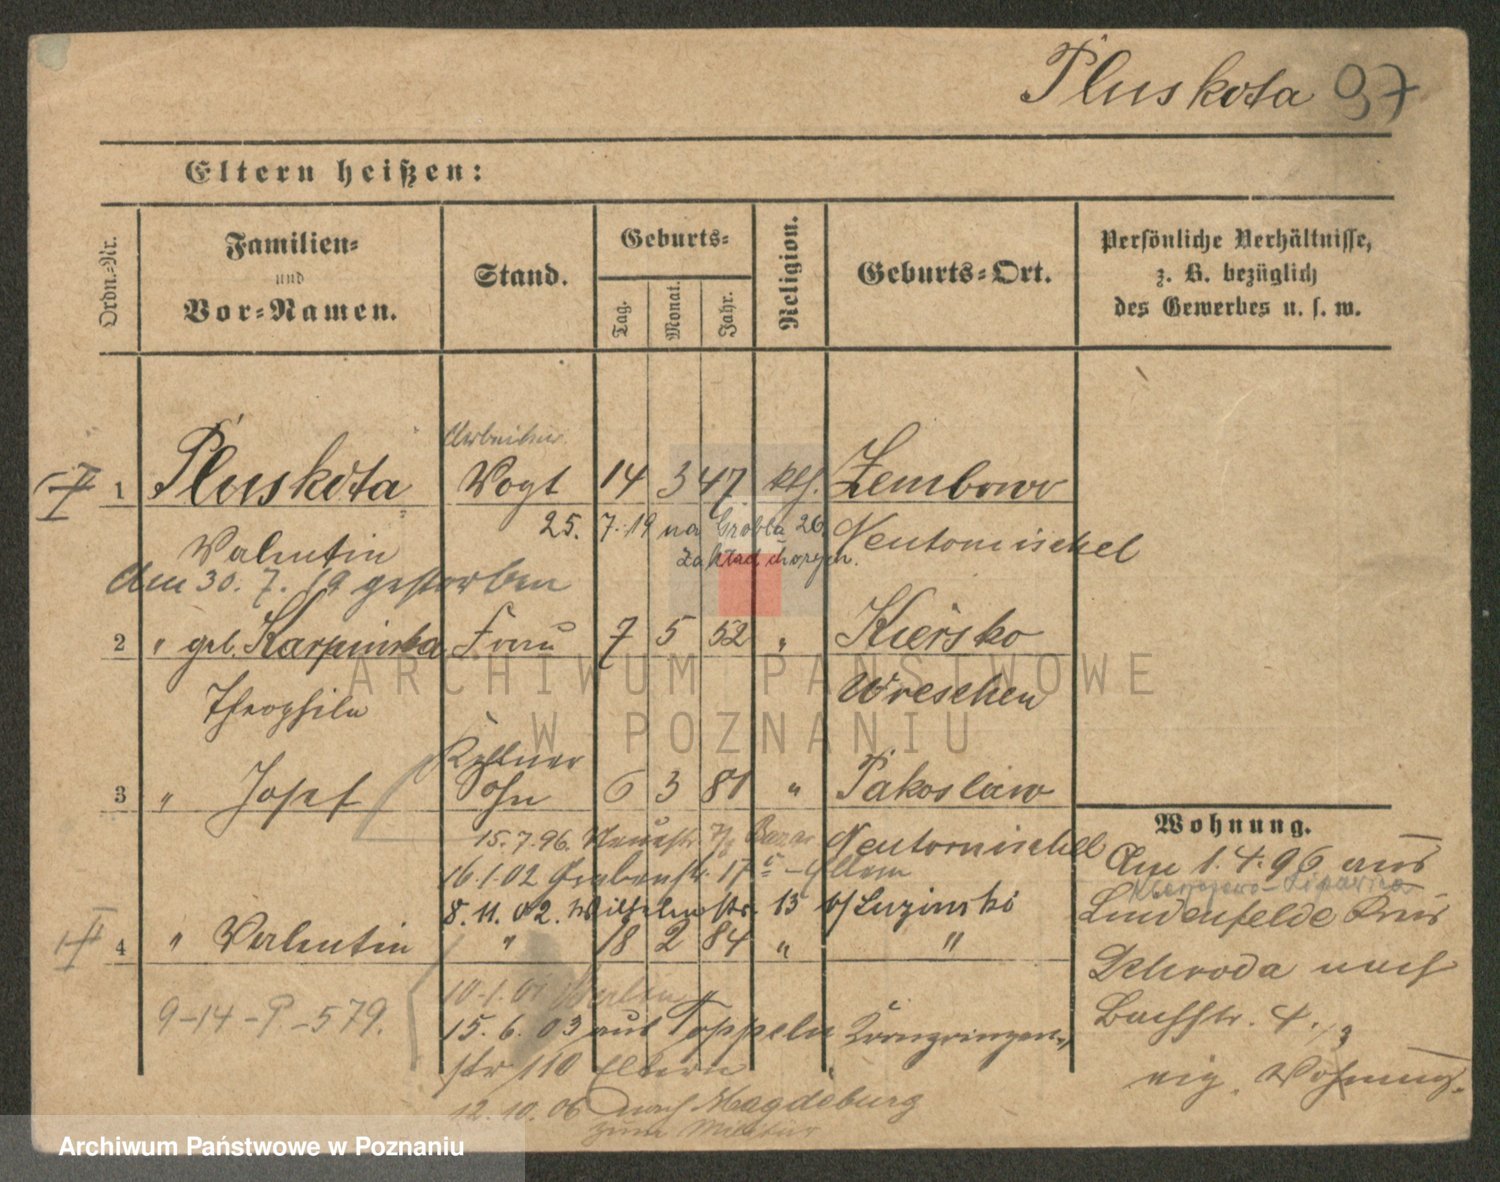 Pluskota 97
Eltern heißen:
Ordn.-Nr.
Familien-
und
Vor-Namen.
Stand.
Geburts-
Tag.
Monat.
Jahr.
Religion.
Geburts-Ort.
Persönliche Verhältnisse,
z. B. bezüglich
des Gewerbes u. s. w.
Arbeiter
1 Pluskota Vogt 14 3 47 kth. Zembowo
25. 7. 19 na Grobla 26
Valentin Neutomischel
Zakład chorych.
Am 30. 7. 19 gestorben
2 " geb. Karpinska Frau 7 5 52 " Kiersko
Theophila Wreschen
Kellner
3 " Josef Sohn 6 3 81 " Pakoslaw
15.7.96. Neuestr. Bazar Neutomischel
16.1.02 Grabenstr. 17 Eltern
8. 11. 02. Wilhelmstr. 13 b/ Luzinski
4 " Valentin " 18 2 84 " "
9-14-P-579.
10.1.01 Berlin
15. 6. 03 aus Toppeln
str 110 Eltern
12. 10. 06 nach Magdeburg
zum Militär
Wohnung.
Am 1. 4. 96 aus
Lindenfelde Kreis
Schroda nach
Bachstr. 4.
eig. Wohnung.
ARCHIWUM PAŃSTWOWE
W POZNANIU
Archiwum Państwowe w Poznaniu